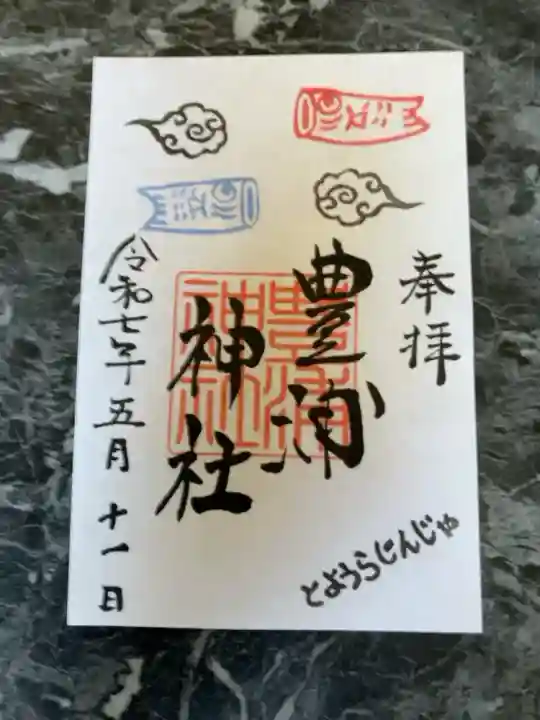 奉拝
豊浦
神社
令和七年五月十一日
とようらじんじゃ
豊浦
神社